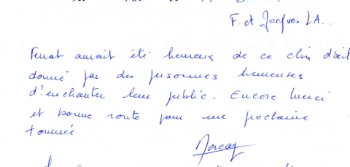 F. et Jacques LA..
Ferrat aurait été heureux de ce clin d'œil
donné par des personnes heureuses
d'enchanter leur public. Encore merci
et bonne route pour une prochaine
tournée